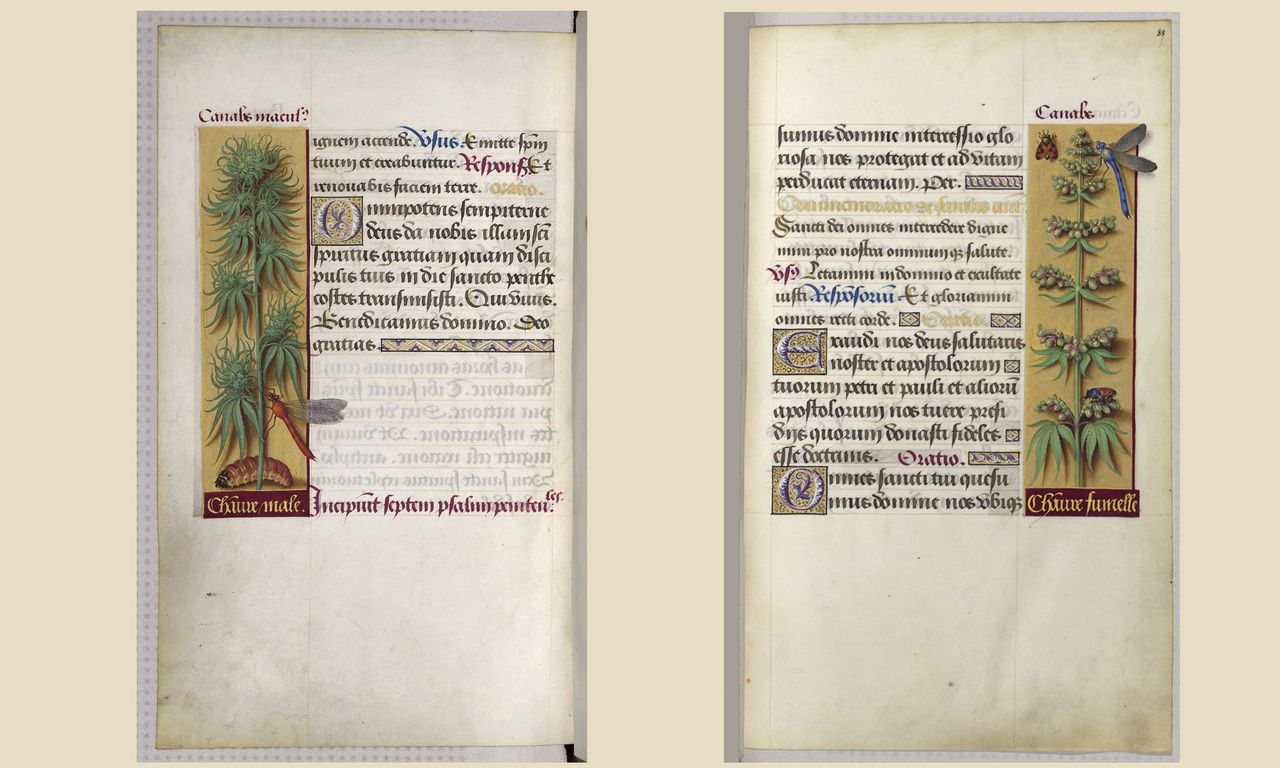 Canabs macul9
ignem accende. Vsus. Et emitte spm
tuum et creabuntur. Respons. Et
renouabis faciem terre. Oratio.
Omnipotens sempiterne
deus da nobis illam scī
spiritus gratiam quam disci
pulis tuis in die sancto penthe
costes transmisisti. Qui viuis.
Benedicamus domino. Deo
gratias.
Chāure male.
Incipiūt septem psalmi peniten.les.
88
Canabs
sumus domine intercessio glo
riosa nos protegat et ad vitam
perducat eternam. Per.
Commemoracio de sanctis ant
Sancti dei omnes intercedere digne
mini pro nostra omnium q; salute.
Vs9 Letamini in domino et exultate
iusti. Respōsoriū Et gloriamini
omnes recti corde. Oratio.
Exaudi nos deus salutaris
noster et apostolorum
tuorum petri et pauli et aliorū
apostolorum nos tuere presi
dijs quorum donasti fideles
esse doctrinis. Oratio.
Omnes sancti tui quesu
mus domine nos vbiq;
Chāure fumelle